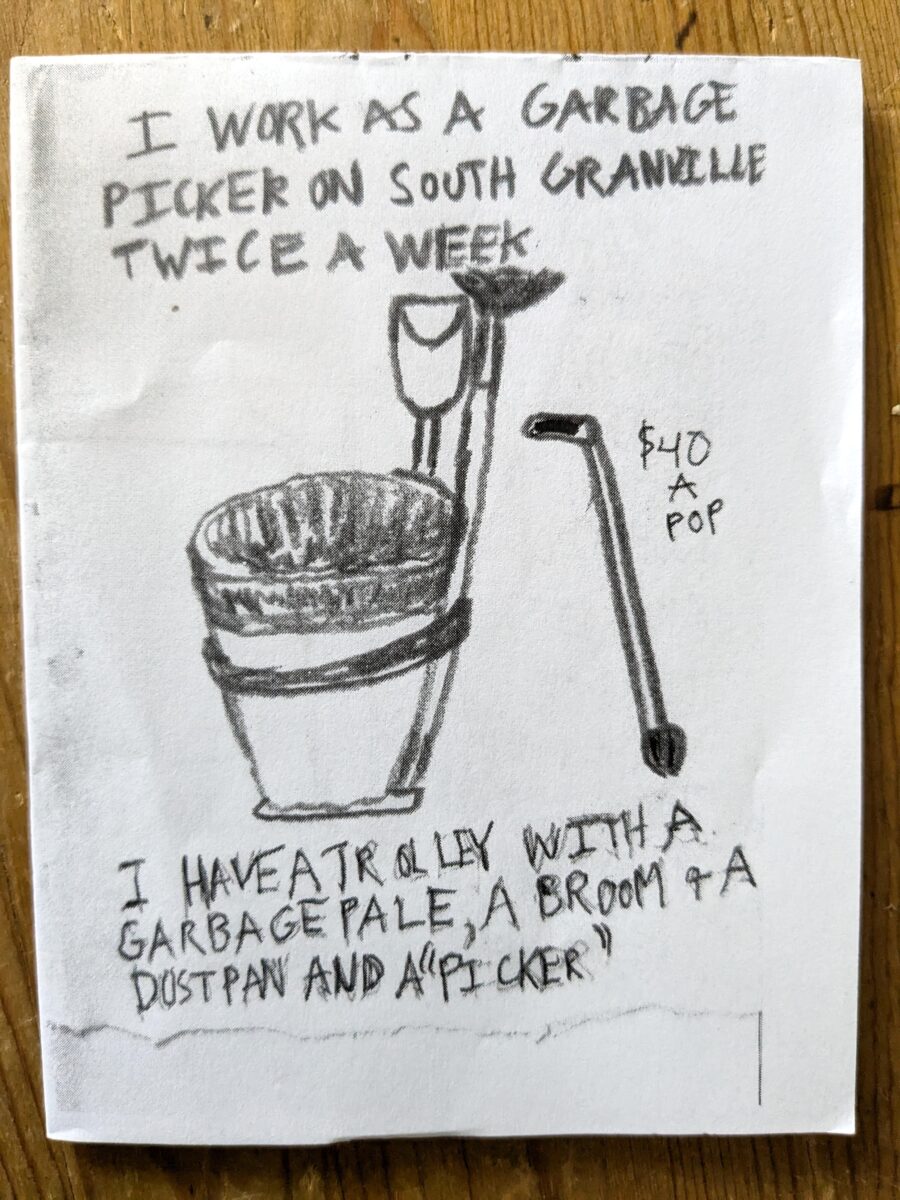 I WORK AS A GARBAGE
PICKER ON SOUTH GRANVILLE
TWICE A WEEK
$40
A
POP
I HAVE A TROLLEY WITH A
GARBAGE PALE, A BROOM & A
DUSTPAN AND A "PICKER"